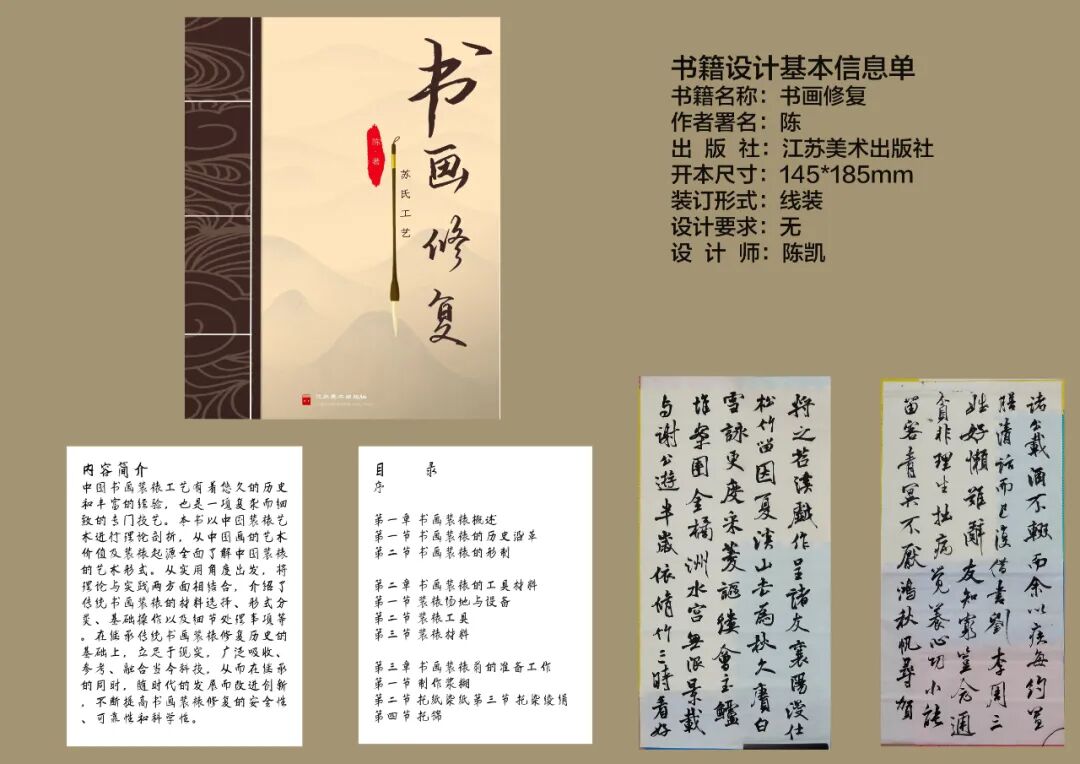 书画修复
陈·著
苏氏工艺
江苏美术出版社
书籍设计基本信息单
书籍名称：书画修复
作者署名：陈
出 版 社：江苏美术出版社
开本尺寸：145*185mm
装订形式：线装
设计要求：无
设 计 师：陈凯
内容简介
中国书画装裱工艺有着悠久的历史
和丰富的经验，也是一项复杂而细
致的专门技艺。本书以中国装裱艺
术进行理论剖析，从中国画的艺术
价值及装裱起源全面了解中国装裱
的艺术形式。从实用角度出发，将
理论与实践两方面相结合，介绍了
传统书画装裱的材料选择、形式分
类、基础操作以及细节处理事项等
。在继承传统书画装裱修复历史的
基础上，立足于现实，广泛吸收、
参考、融合当今科技，从而在继承
的同时，随时代的发展而改进创新
，不断提高书画装裱修复的安全性
、可靠性和科学性。
目 录
序
第一章 书画装裱概述
第一节 书画装裱的历史沿革
第二节 书画装裱的形制
第二章 书画装裱的工具材料
第一节 装裱场地与设备
第二节 装裱工具
第三节 装裱材料
第三章 书画装裱前的准备工作
第一节 制作浆糊
第二节 托纸染纸第三节 托染绫绢
第四节 托锦
将之苕溪戲作呈诸友襄陽漫仕
松竹留因夏溪山去為秋久賡白
雪詠更度采菱謳縷會主鱸
堆案團金橘洲水宫無限景載
与謝公遊半歲依修竹三時看好
诸公載酒不輟而余以疾每约置
膳清話而已復借書劉李周三
姓好懶難辭友知窮豈念通
貧非理生拙病覺養心功小能
留客青冥不厭鴻秋帆尋賀